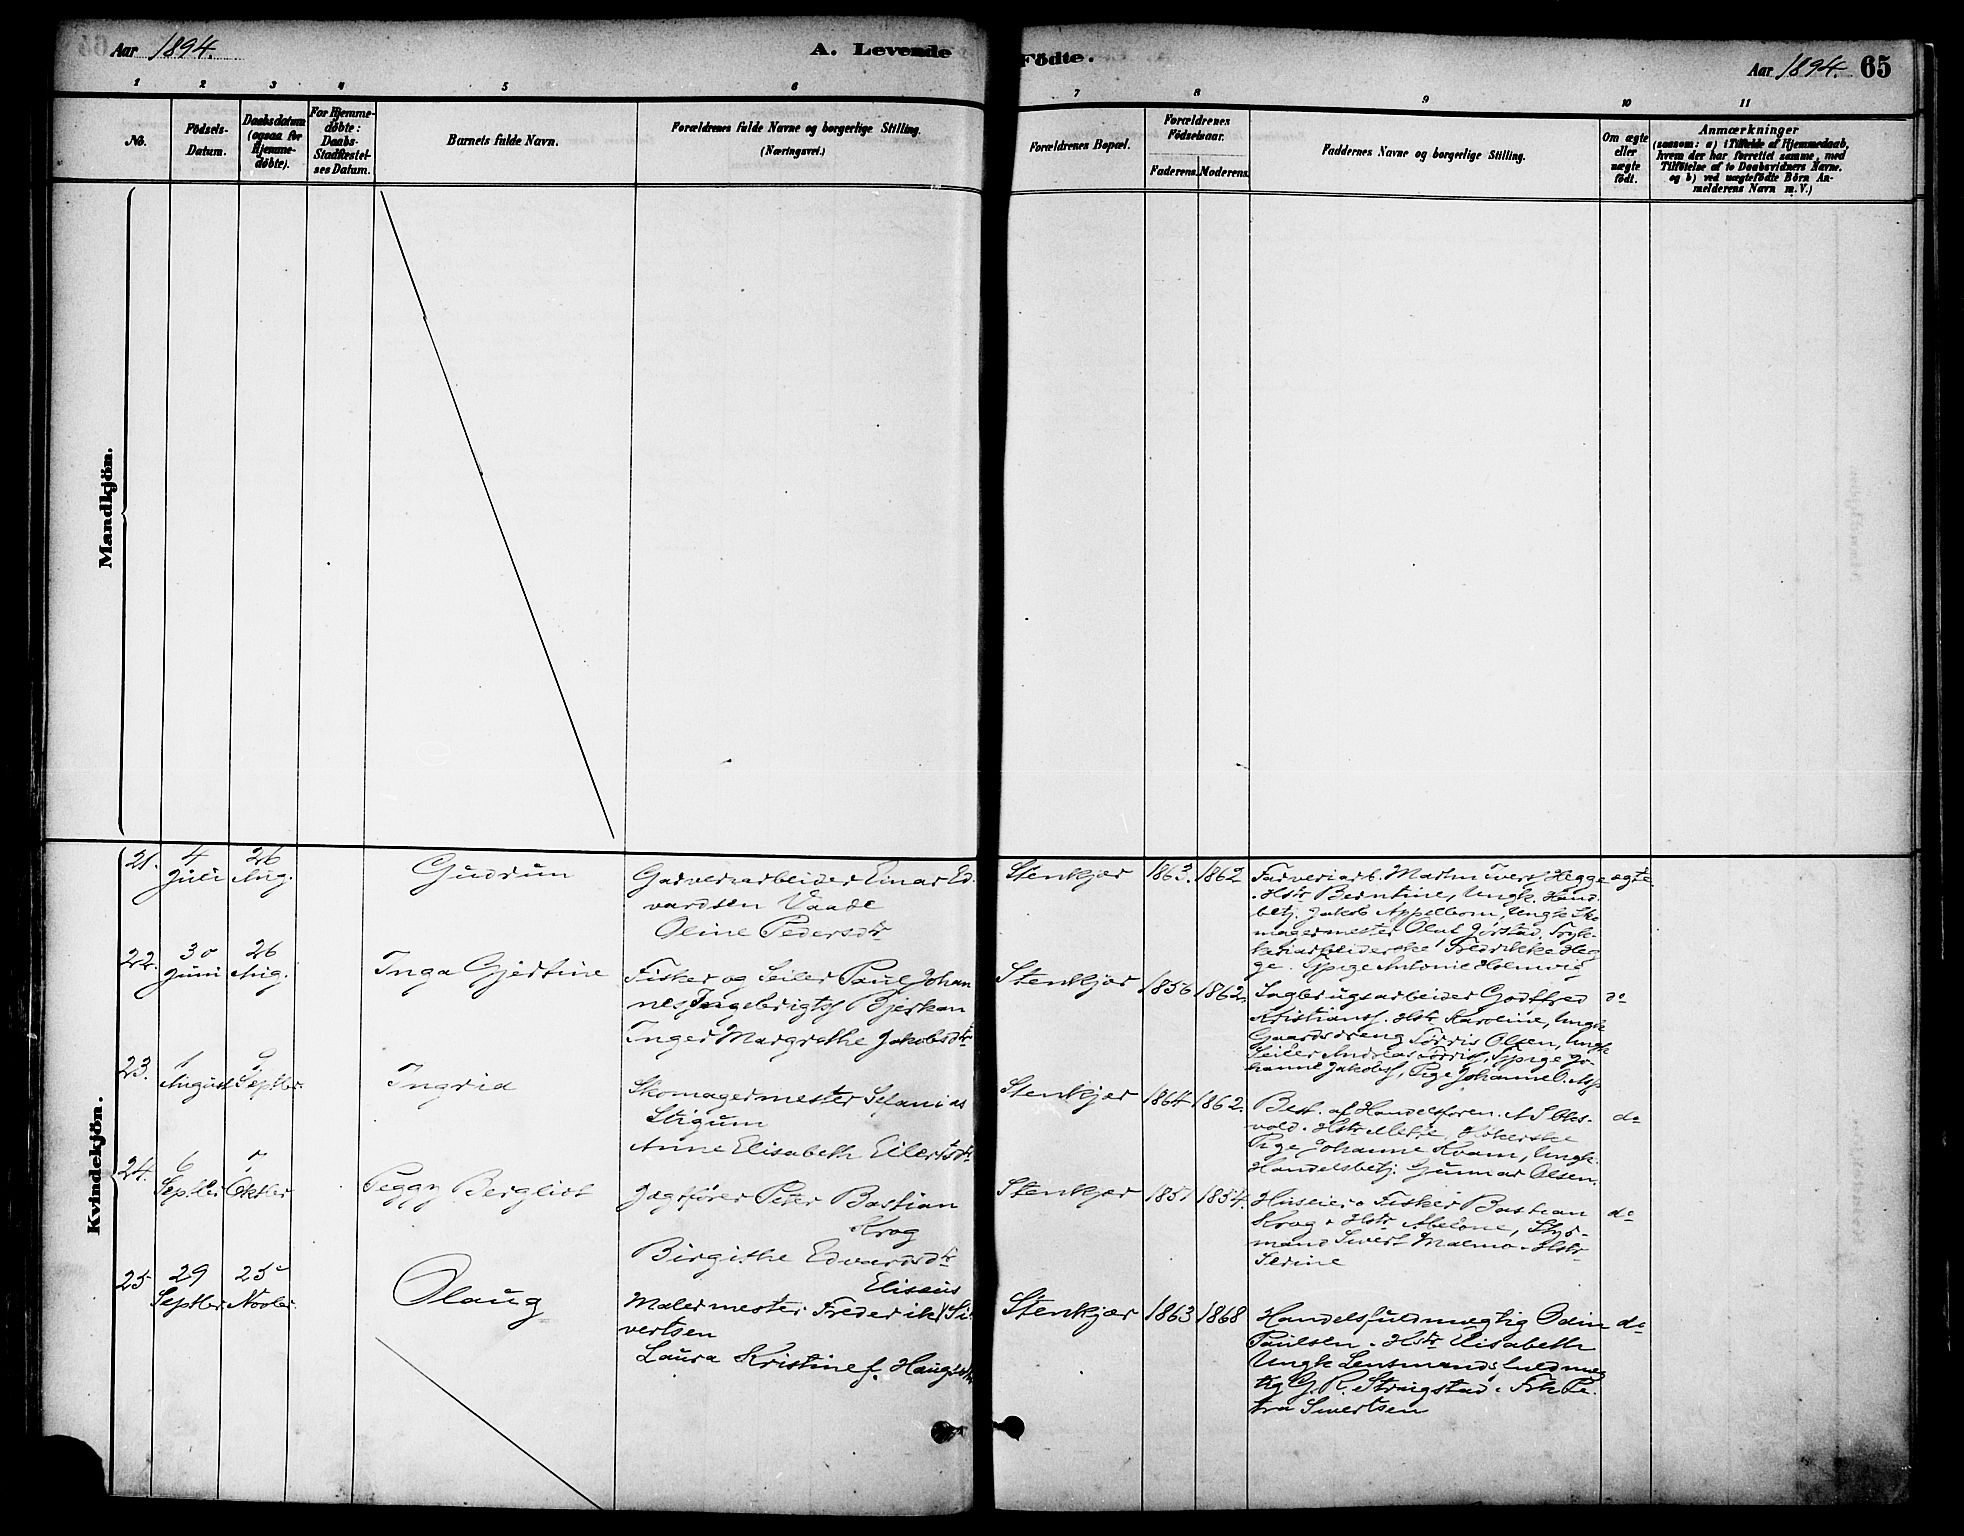 Aar 1894.
A. Levende
Födte.
Aar 1894. 65
1 2 3 4 5 6
7 8 9 10 11
No.
Födsels-
Datum.
Daabsdatum
(ogsaa for
Hjemme-
døbte).
For Hjemme-
døbte:
Daabs-
Stadfæstel-
ses Datum.
Barnets fulde Navn.
Forældrenes fulde Navne og borgerlige Stilling.
(Næringsvei.)
Forældrenes Bopæl.
Forældrenes
Födselsaar.
Faderens. Moderens.
Faddernes Navne og borgerlige Stilling.
Om ægte
eller
uægte
født.
Anmærkninger
(saasom: a) i Tilfælde af Hjemmedaab,
hvem der har forrettet samme, med
Tilföielse af to Daabsvidners Navne.
og b) ved uægtefödte Börn An-
melderens Navn m. V.)
Mandkjön.
Kvindekjön.
21.
4
Juli
26
Aug.
Gudrun
Garveriarbeider Einar Ed-
vardsen Vaade
Oline Pedersdtr
Stenkjær 1863. 1862
Farveriarb. Hegge
Hstr Berntine, Ungk. Hand.
betj. Jakob Appelbom, Ungk Sko
magermester Olut Gjöstad,
Fredrikke Heg
ge. Antonie Holmvig
ægte.
22.
30
Juni
26
Aug.
Inga Gjertine
Fisker og Seiler Paul Johan
nes Ingebrigts Bjerkan
Inger Margrethe Jakobsdtr
Stenkjær 1856 1862.
Sagbrugsarbeider Godtfred
Kristians. Hstr Karoline, Ungk
Gaardsdreng Törris Olsen, Ungk
Seiler Andreas Jo-
hanne Jakobs, Pige Johanne
do
23.
1
August
Septber
Ingrid
Skomagermester Sefanias
Stigum
Anne Elisabeth Eilertsdtr
Stenkjær 1864 1862.
Best. af Handelsforen.
vold. Hstr Mette, Hökerske
Pige Johanne Kvam, Ungk.
Handelsbetj. Gunnar Olsen.
do
24.
6
Septbr
7
Oktbr
Peggy Bergliot
Jægtfører Peter Bastian
Krog
Birgithe Edvardsdtr
Stenkjær 1851 1854.
Huseier o Fisker Bastian
Krog o Hstr Abelone, Styr-
mand Sivert Malmo o Hstr
Serine
do
25
29
Septbr
25
Novbr.
Olaug
Eliseus
Malermester Frederik Si-
vertsen
Laura Kristine f. Haug
Stenkjær 1863 1868
Handelsfuldmægtig Odin
Paulsen o Hstr Elisabeth
Ungk Lensmandsfuldmæg
tig G. R. Stringstad. Frk Pe-
tra Sivertsen
do